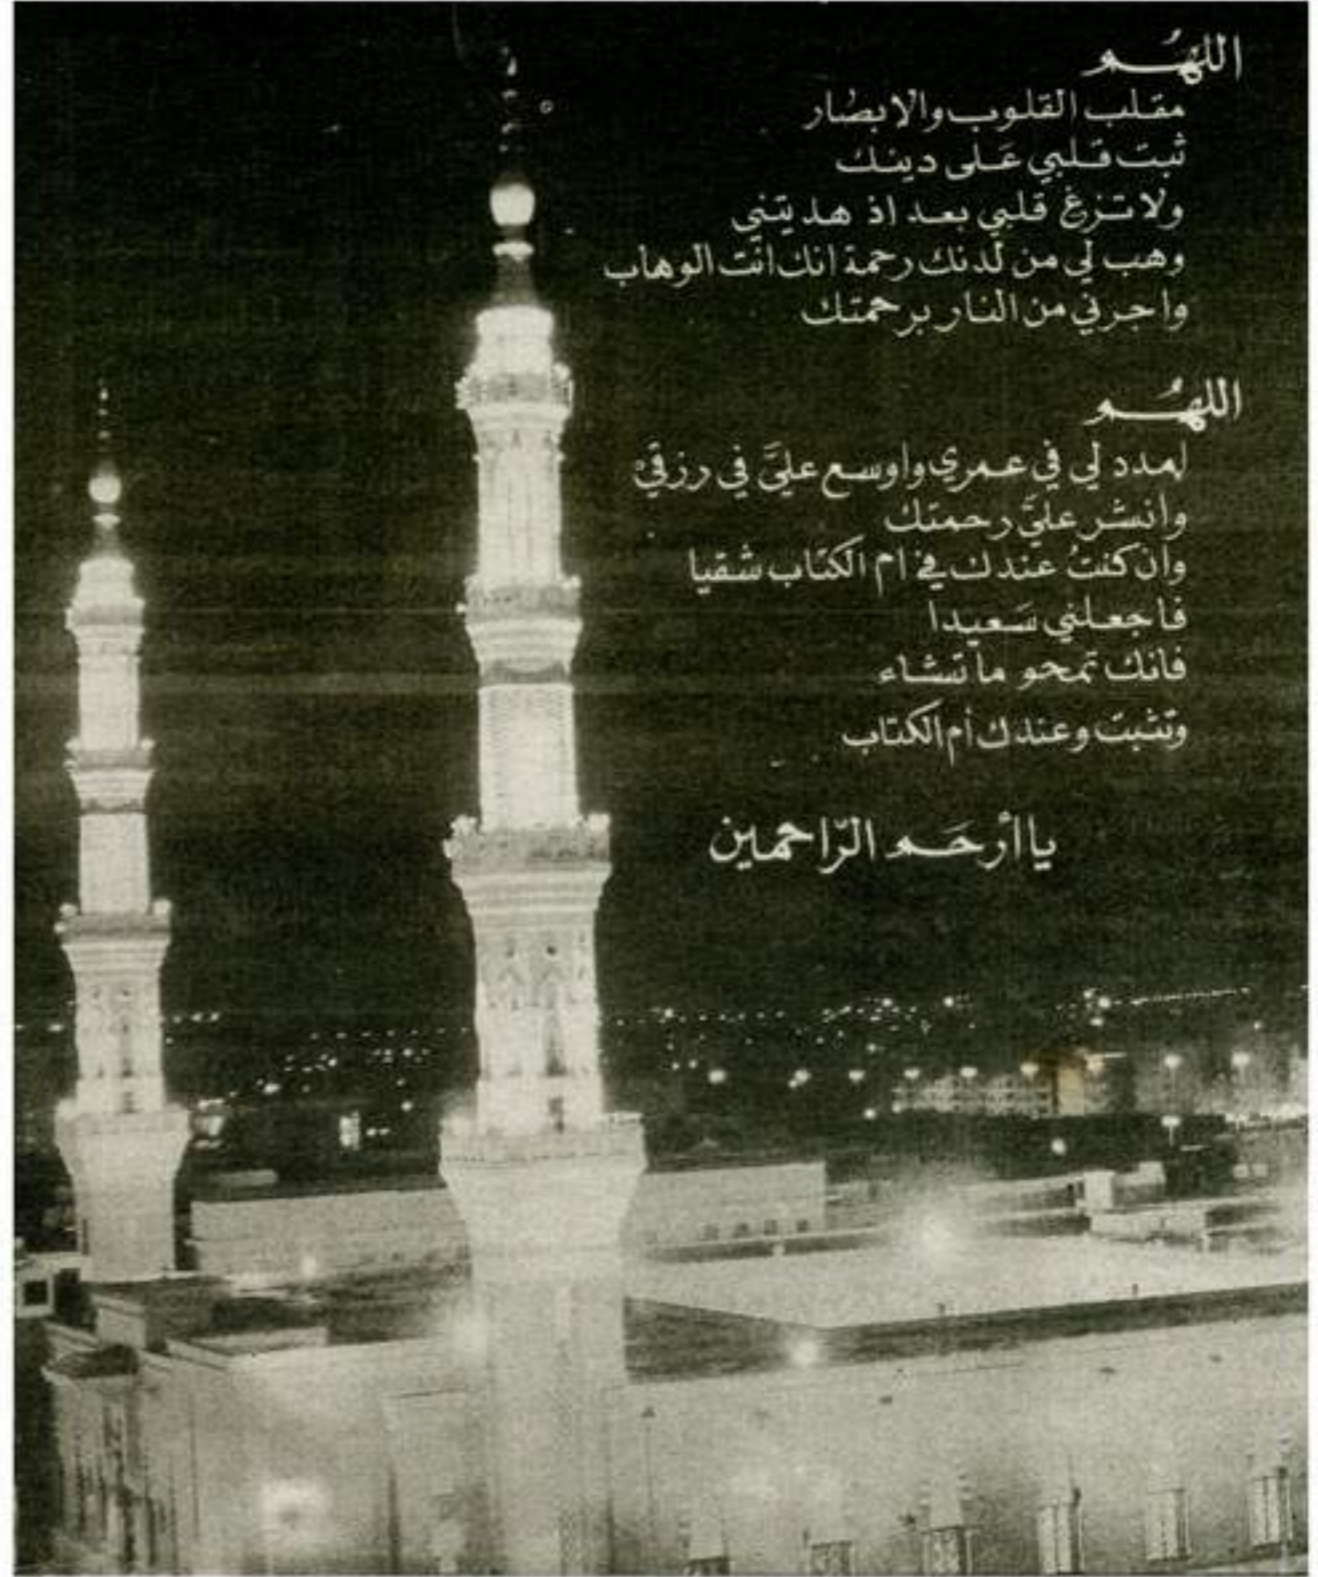 اللهُم
مقلب القلوب والابصار
ثبت قلبي عَلى دينك
ولا تزغ قلبي بعد اذ هديتني
وهب لي من لدنك رحمة انك انت الوهاب
واجرني من النار برحمتك
اللهُم
امدد لي في عمري واوسع عليَّ في رزقي
وانشر عليَّ رحمتك
وان كنتُ عندك في ام الكتاب شقيا
فاجعلني سَعيدا
فانك تمحو ما تشاء
وتثبت وعندك أم الكتاب
يا أرْحَم الرّاحمين